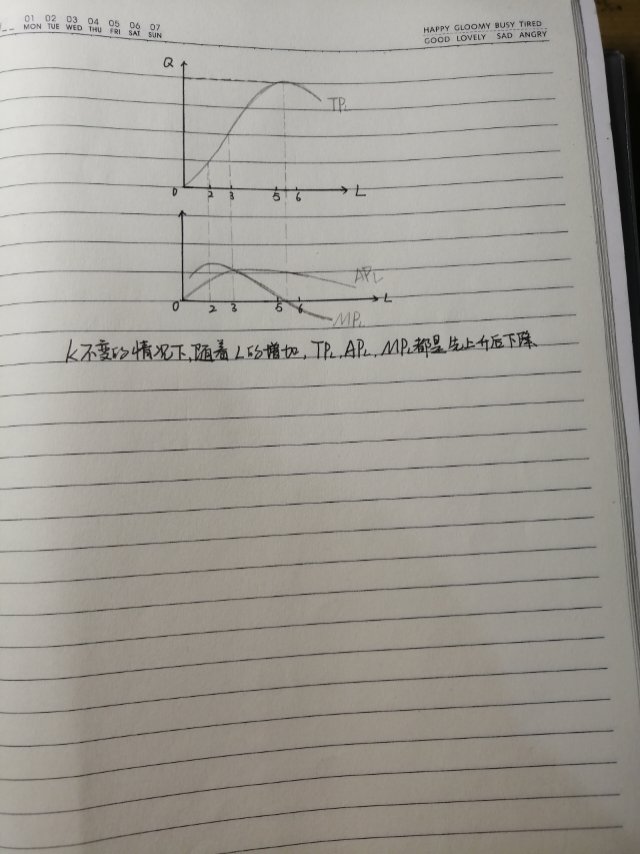 01 02 03 04 05 06 07
MON TUE WED THU FRI SAT SUN
HAPPY GLOOMY BUSY TIRED
GOOD LOVELY SAD ANGRY
Q
TPL
0 2 3 5 6 L
APL
0 2 3 5 6 L
MPL
K不变的情况下,随着L的增加,TPL,APL,MPL都是先上升后下降.